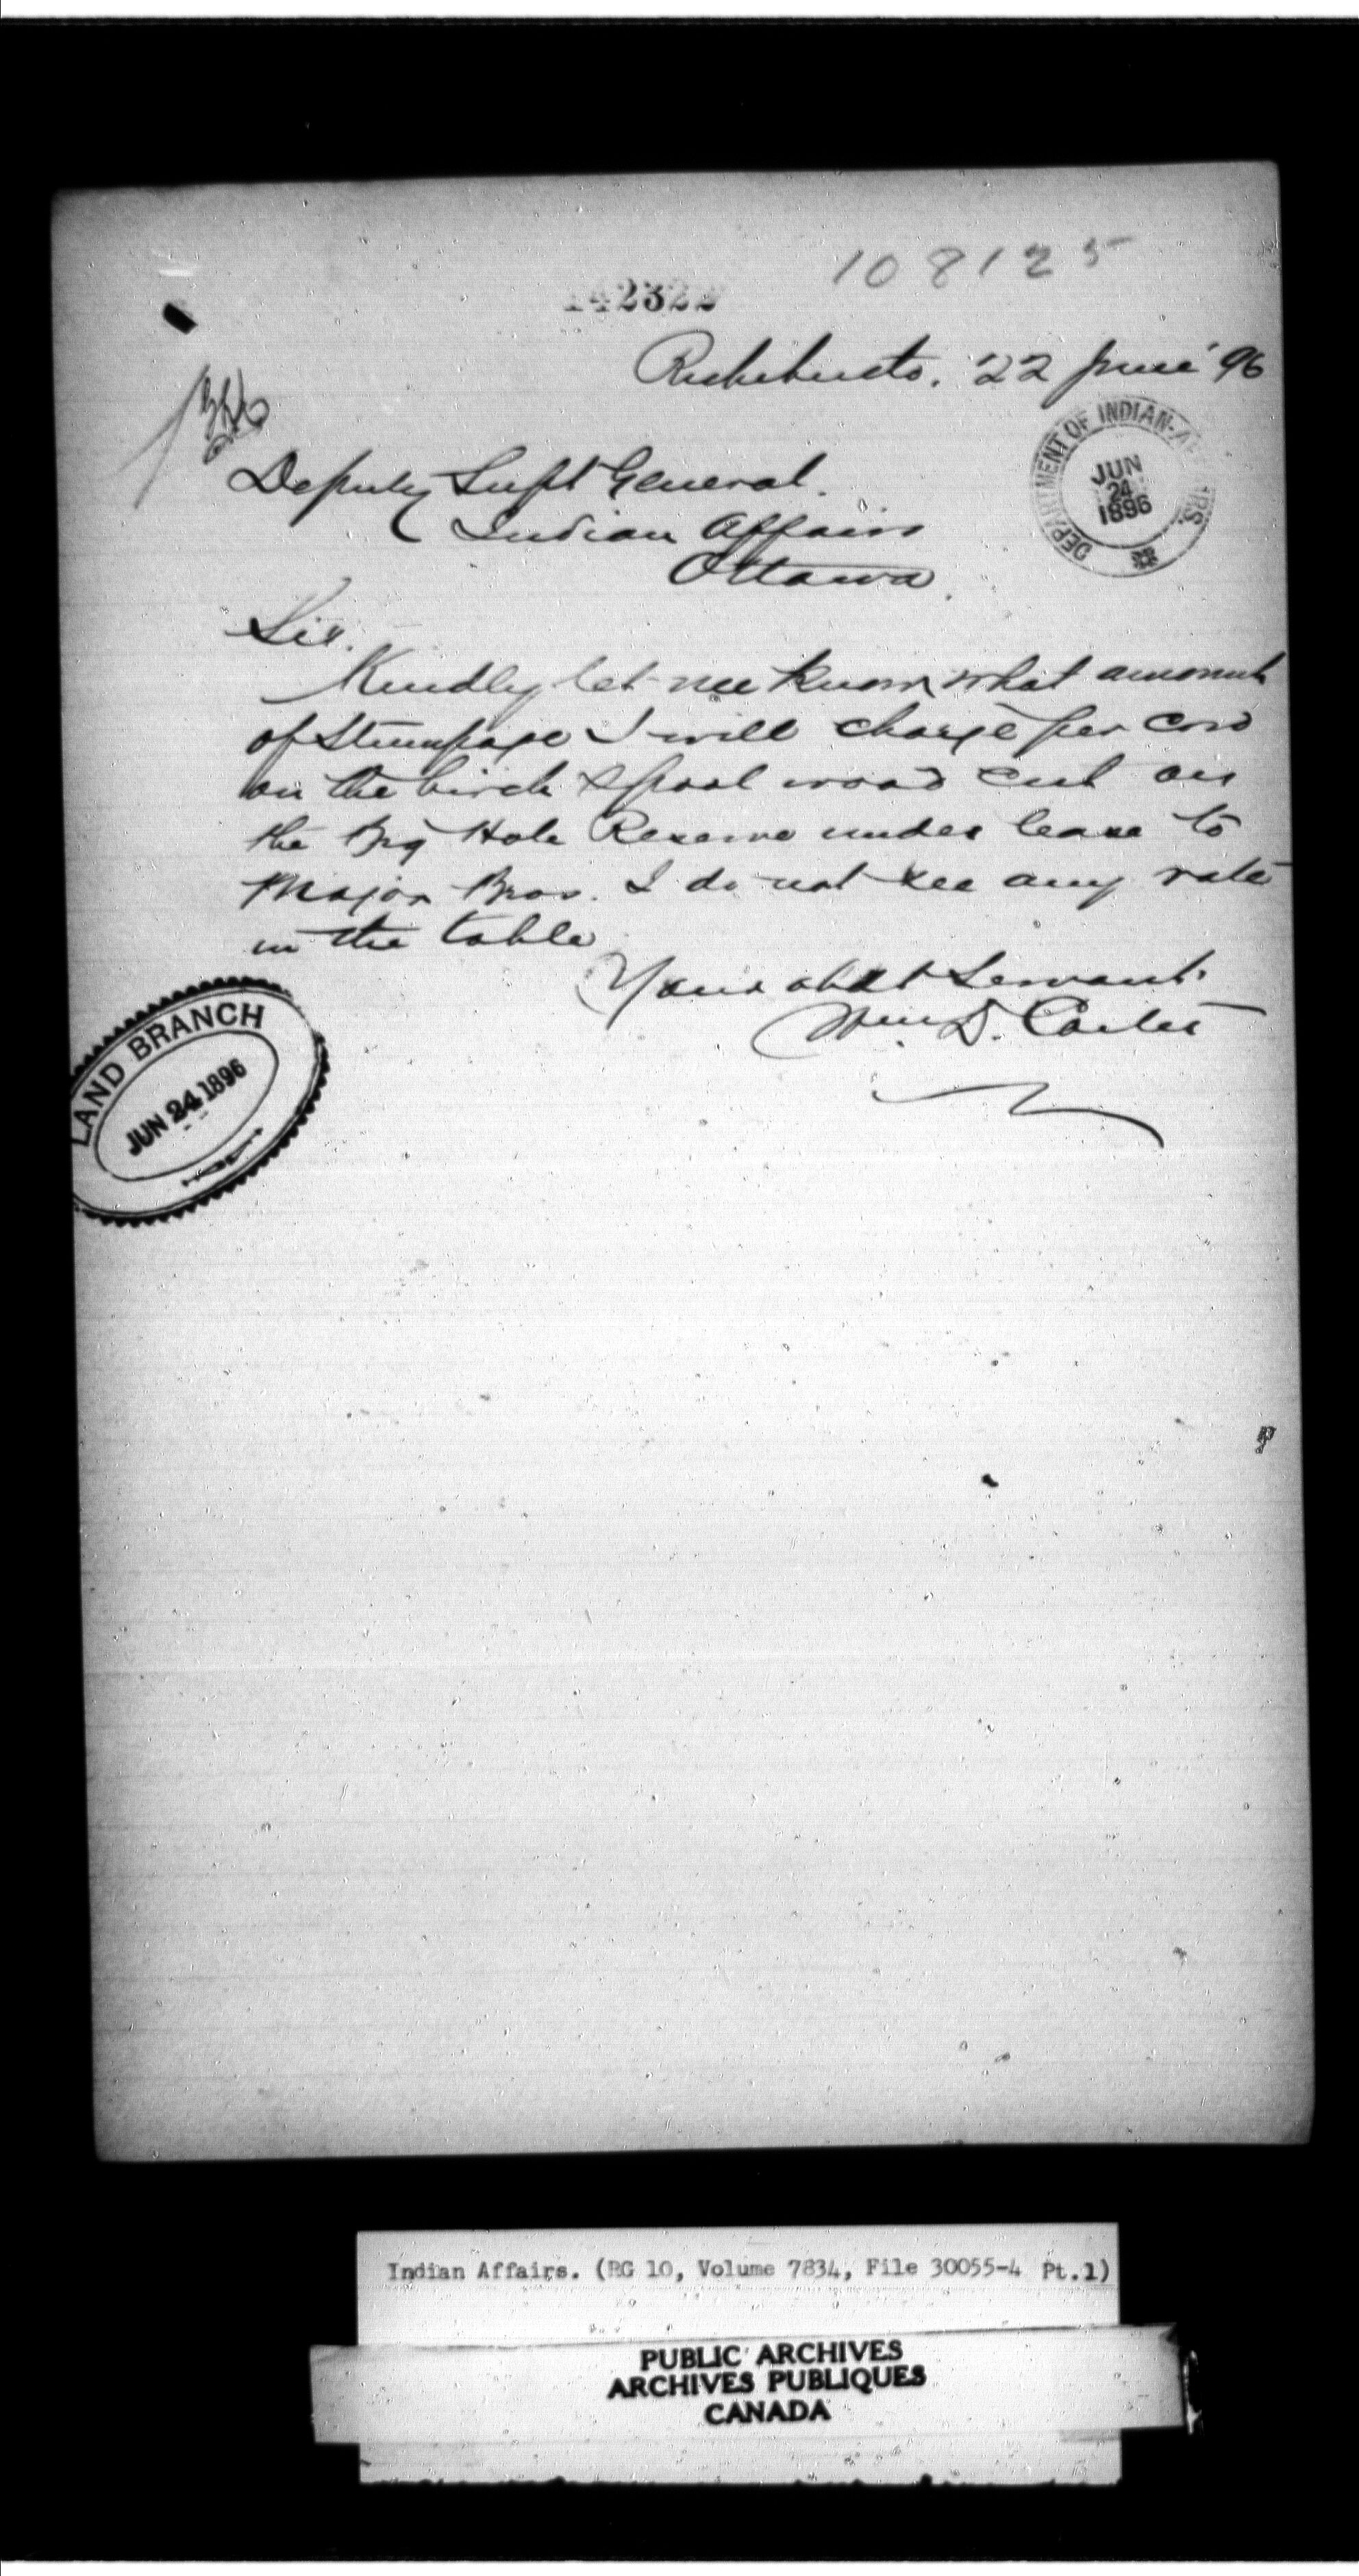 108125
142322
Richibucto. 22 June '96
DEPARTMENT OF INDIAN AFFAIRS.
JUN
24
1896
Deputy Supt General.
Indian Affairs
Ottawa.
Sir.
Kindly let me know what amount
of Stumpage I will charge per Cord
on the birch & spool wood cut on
the Big Hole Reserve under lease to
Major Bros. I do not see any rate
in the table
Your obdt Servant.
Wm D. Carter
LAND BRANCH
JUN 24 1896
Indian Affairs. (RG 10, Volume 7834, File 30055-4 Pt.1)
PUBLIC ARCHIVES
ARCHIVES PUBLIQUES
CANADA